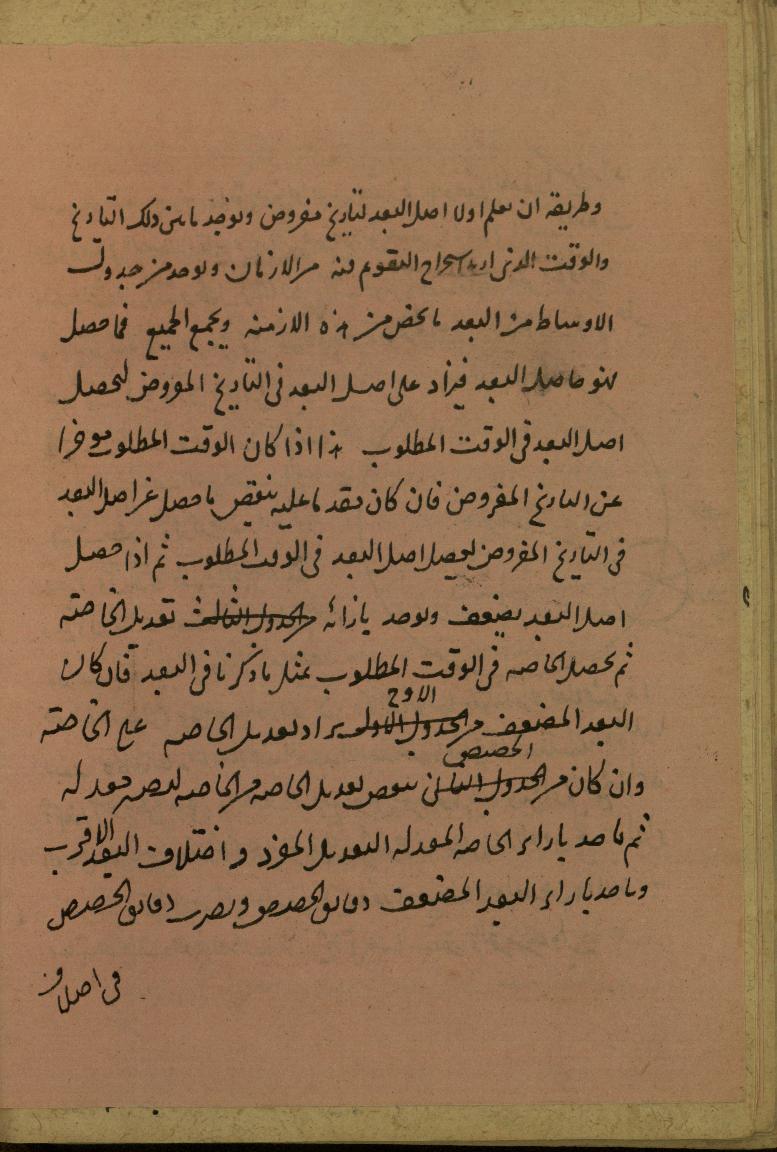 وطريقه ان يعلم اولا اصل البعد لتاريخ مفروض ويوخذ ما بين ذلك التاريخ
والوقت الذى اريد استخراج التقويم فيه من الازمان ويوخذ من جدول
الاوساط من البعد ما يخص من هذه الازمنه ويجمع الجميع فما حصل
فهو حاصل البعد فيزاد على اصل البعد فى التاريخ المفروض ليحصل
اصل البعد فى الوقت المطلوب هذا اذا كان الوقت المطلوب موخرا
عن التاريخ المفروض فان كان مقدما عليه ينقص ما حصل عن اصل البعد
فى التاريخ المفروض ليحصل اصل البعد فى الوقت المطلوب ثم اذا حصل
اصل البعد يضعف ويوخذ بازائه من الجدول الثالث تعديل الخاصته
ثم يحصل الخاصه فى الوقت المطلوب بمثل ما ذكرنا فى البعد فان كان
الاوج
البعد المضعف من الجدول الاول يزاد تعديل الخاصه على الخاصته
الحضيضى
وان كان من الجدول الثانى ينقص تعديل الخاصه من الخاصه ليصير معدله
ثم ياخذ بازاء الخاصه المعدله التعديل المفرد و اختلاف البعد الاقرب
وياخذ بازاء البعد المضعف دقائق الحصص ويضرب دقائق الحصص
فى اختلاف